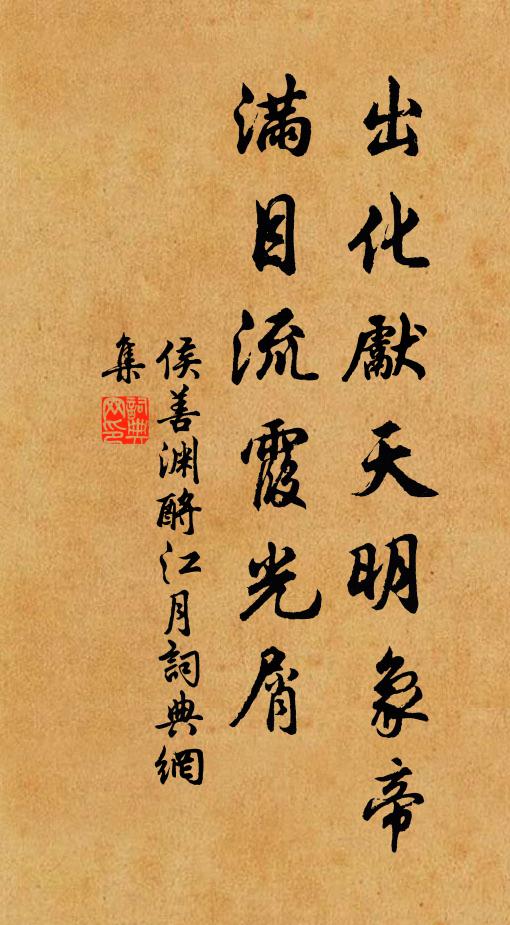 出化獻天明象帝
滿目流霞光屑
侯善渊酹江月詞典網
集
詞典
网印